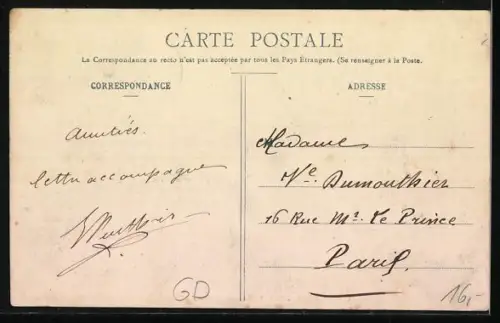 CARTE POSTALE
La Correspondance au recto n'est pas acceptée par tous les Pays Étrangers. (Se renseigner à la Poste.
CORRESPONDANCE
ADRESSE
Amitiés.
lettre accompagne
Madame
Vᵉ Dumouthier
16 Rue Mr. Le Prince
Paris.
GD
16,-